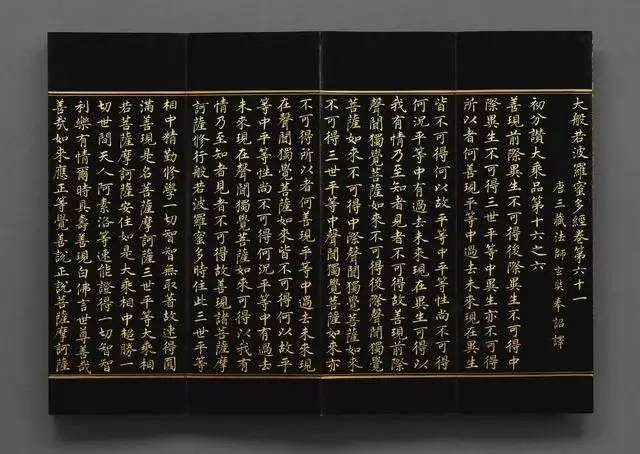 大般若波羅蜜多經卷第六十一
唐三藏法師玄奘奉詔譯
初分讚大乘品第十六之六
善現前際異生不可得後際異生不可得中
際異生不可得三世平等中異生亦不可得
所以者何善現平等中過去未來現在異生
皆不可得何以故平等中平等性尚不可得
何況平等中有過去未來現在異生可得以
我有情乃至知者見者不可得故善現前際
聲聞獨覺菩薩如來不可得後際聲聞獨覺
菩薩如來不可得中際聲聞獨覺菩薩如來
不可得三世平等中聲聞獨覺菩薩如來亦
不可得所以者何善現平等中過去未來現
在聲聞獨覺菩薩如來皆不可得何以故平
等中平等性尚不可得何況平等中有過去
未來現在聲聞獨覺菩薩如來可得以我有
情乃至知者見者不可得故善現諸菩薩摩
訶薩修行般若波羅蜜多時住此三世平等
相中精勤修學一切智智無取著故速得圓
滿善現是名菩薩摩訶薩三世平等大乘相
若菩薩摩訶薩安住如是大乘相中超勝一
切世間天人阿素洛等速能證得一切智智
利樂有情爾時具壽善現白佛言世尊善哉
善哉如來應正等覺善說正說菩薩摩訶薩